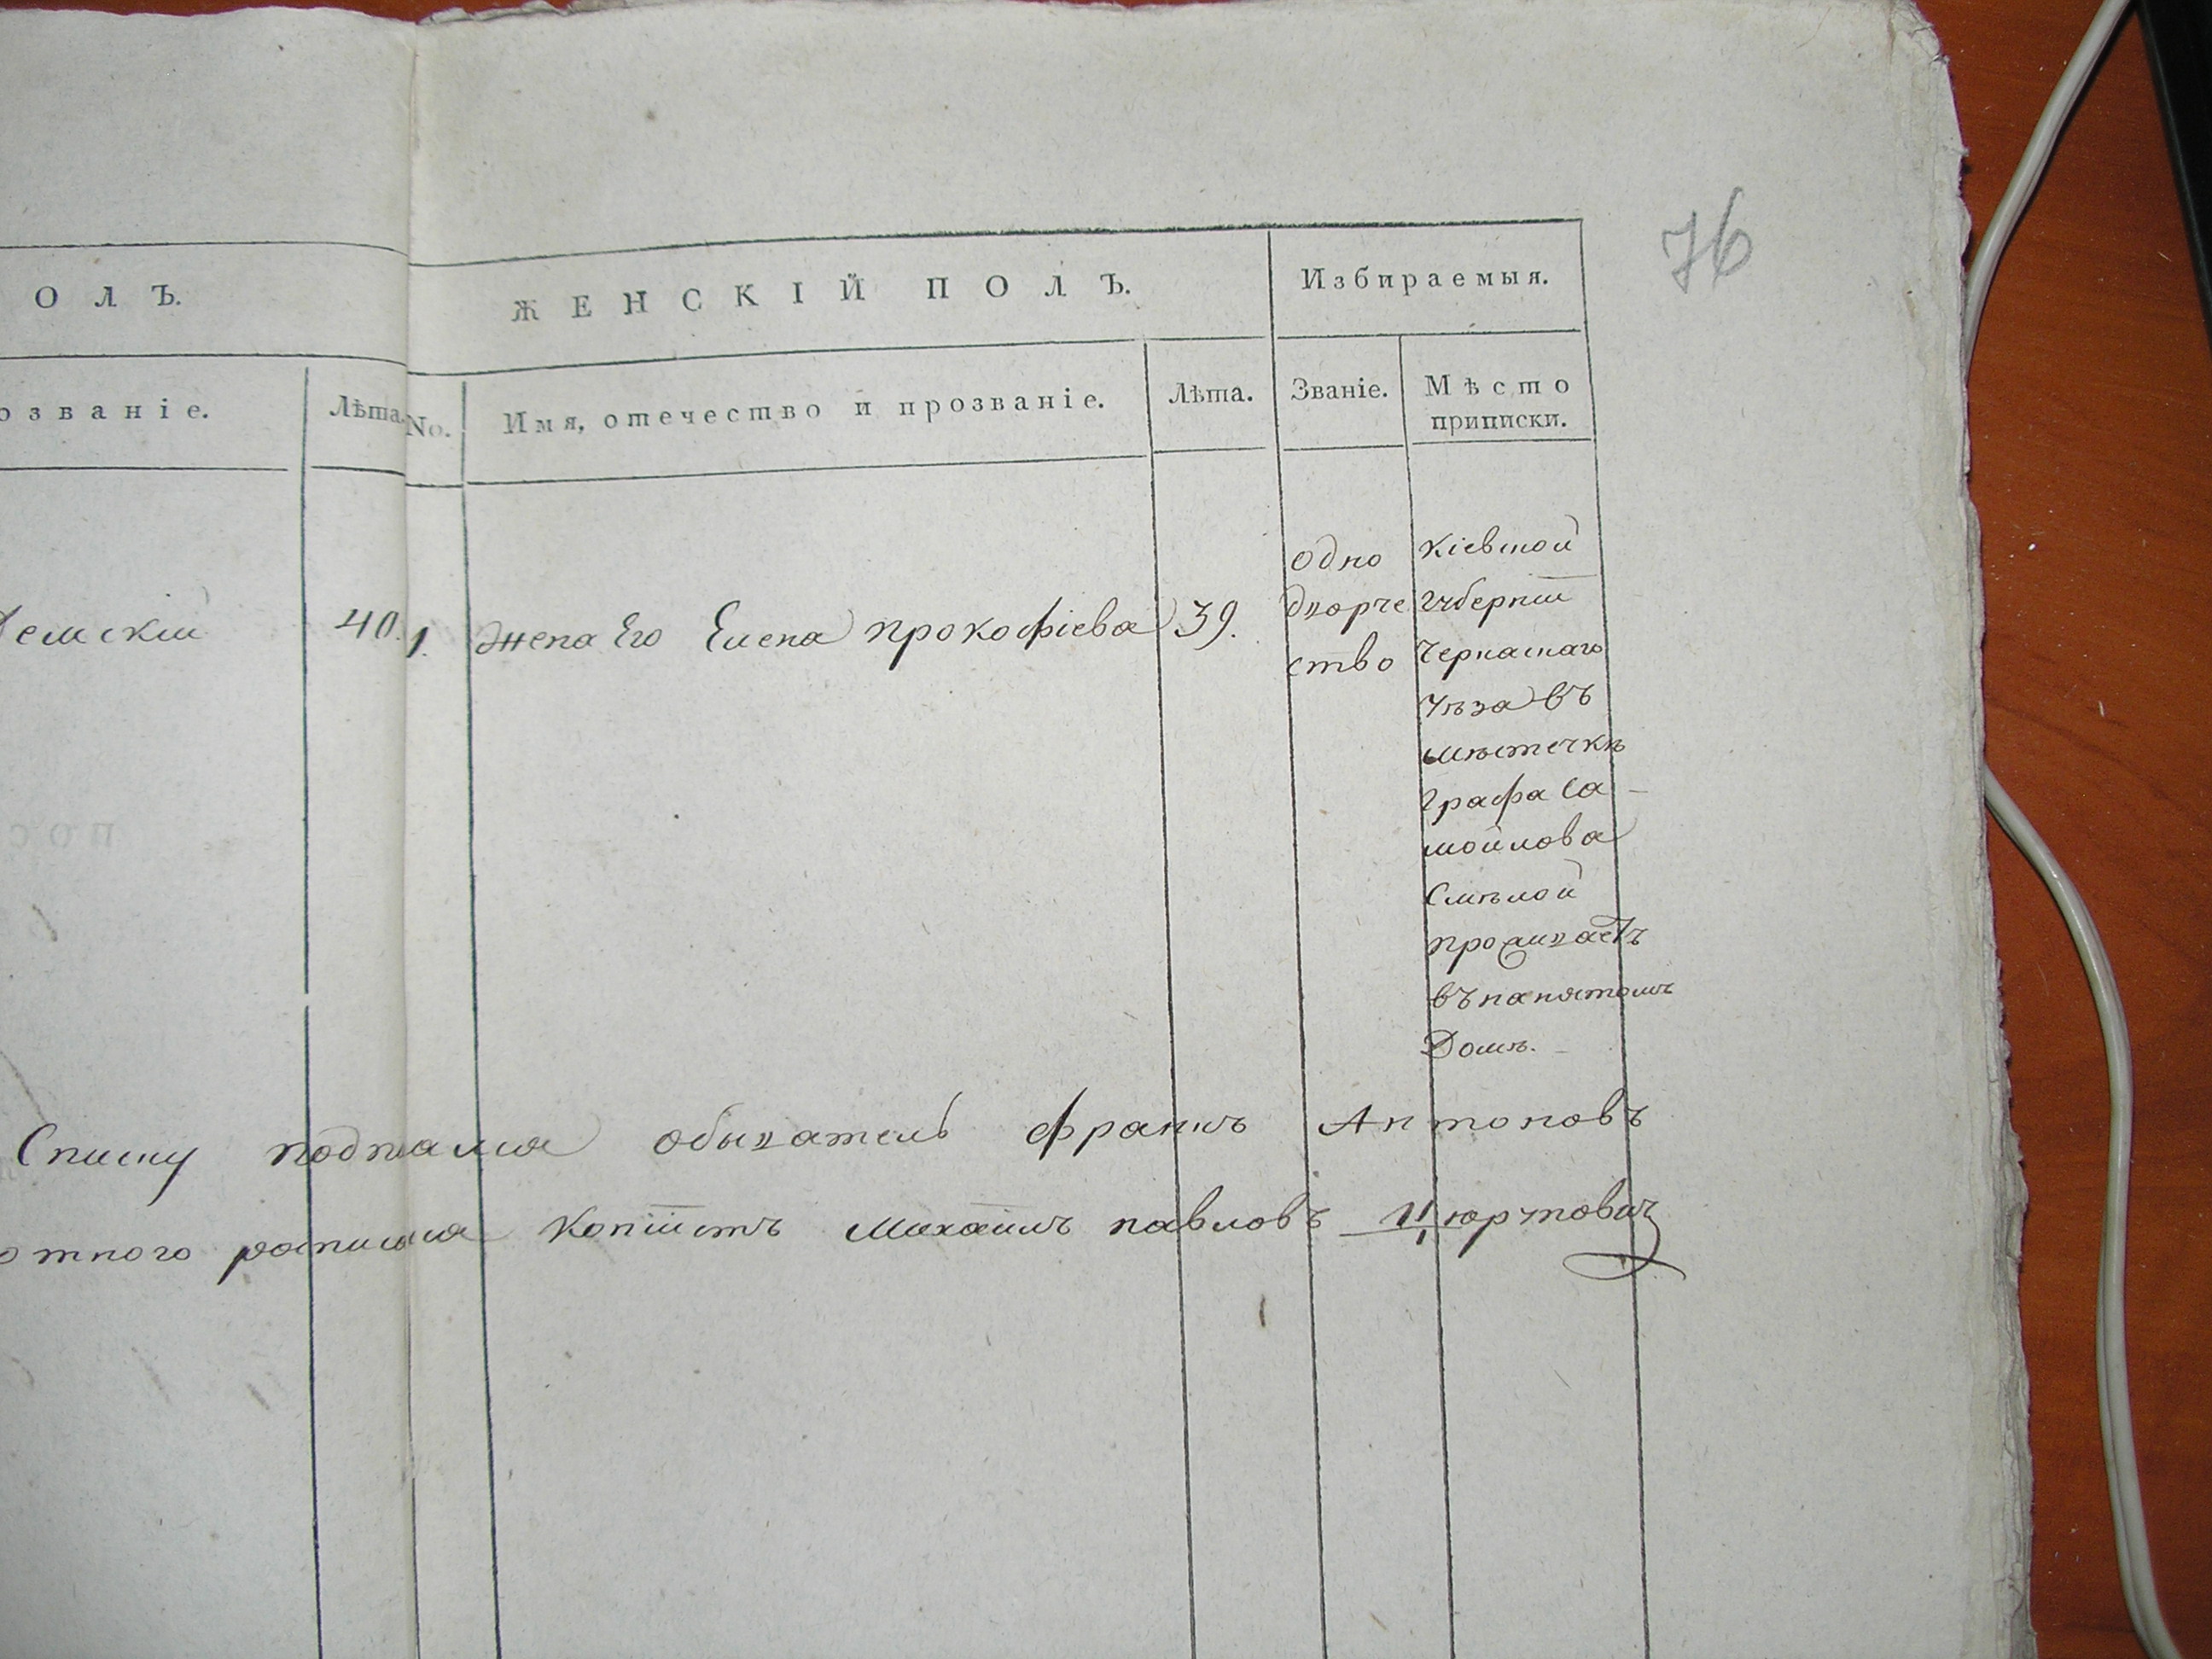 76
ОЛЪ.
ЖЕНСКІЙ ПОЛЪ.
Избираемыя.
озваніе.
Лѣта.
No.
Имя, отечество и прозваніе.
Лѣта.
Званіе.
Мѣсто
приписки.
40.
1.
жена Его Елена прокофіева
39.
одно
дворче
ство
Кіевской
Губерніи
Черкаскаго
уѣзда въ
мѣстечкѣ
Графа Са-
мойлова
Смѣлой
проживаетъ
въ нанятомъ
Домѣ.
Списку обыватель францъ Антоновъ
росписался Копіистъ Михаилъ павловъ